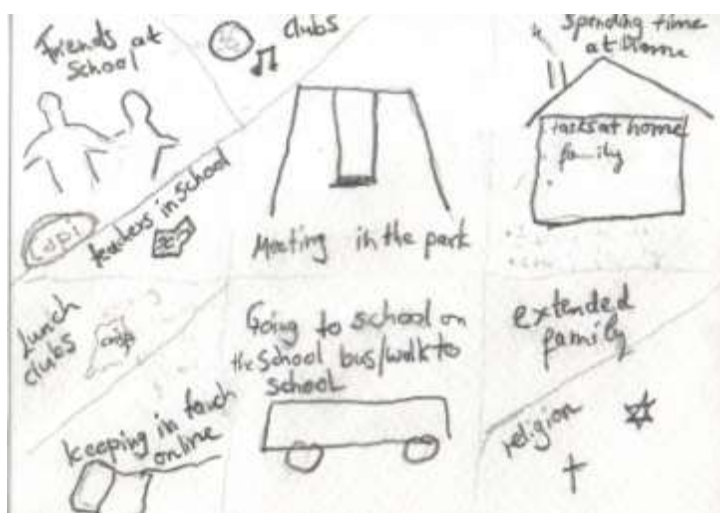 Friends at
School
clubs
spending time
at home
tasks at home
family
teachers in school
Meeting in the park
Lunch
clubs
crisps
Going to school on
the school bus/walk to
school
extended
family
keeping in touch
online
religion